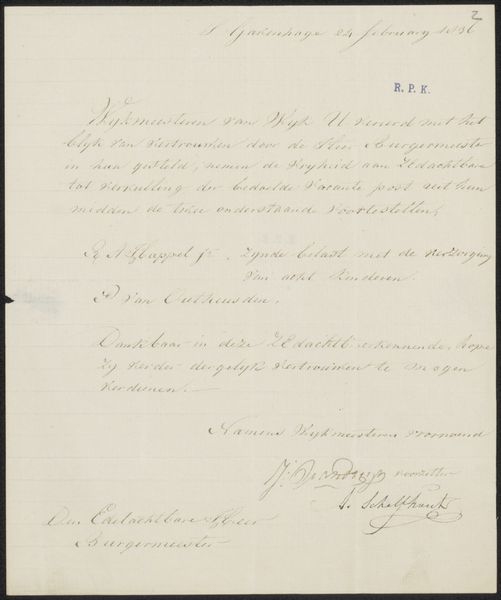 2
S Gravenhage 24 february 1836
R. P. K.
Wijkmeesteren van Wijk U vereerd met het
blijk van vertrouwen door de Heer Burgermeester
in hun gesteld, nemen de vrijheid aan ZEdachtbare
tot vervulling der bedoelde vacante post uit hun
midden de twee onderstaande voortestellen,
Happel jr. zynde belast met de verzorging
van acht kinderen.
P van Outheusden.
Dankbaar in deze ZEdachtb. erkennende, hopen
zy verder dergelyk vertrouwen te mogen
verdienen.
Namens Wykmeesteren voornoemd
voorzitter
A. Schelfhout
Den Edelachtbare Heer
Burgermeester